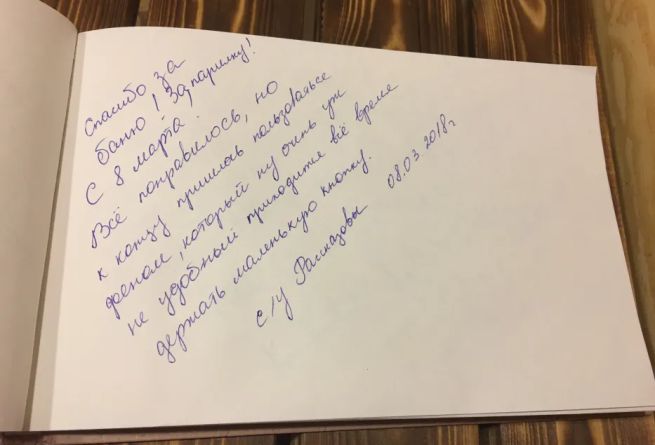 Спасибо за
баню! За парилку!
С 8 марта!
Всё понравилось, но
к концу пришлось пользоваться
феном, который ну очень уж
не удобный приходится всё время
держать маленькую кнопку.
с/у Рассказовы 08.03 2018г